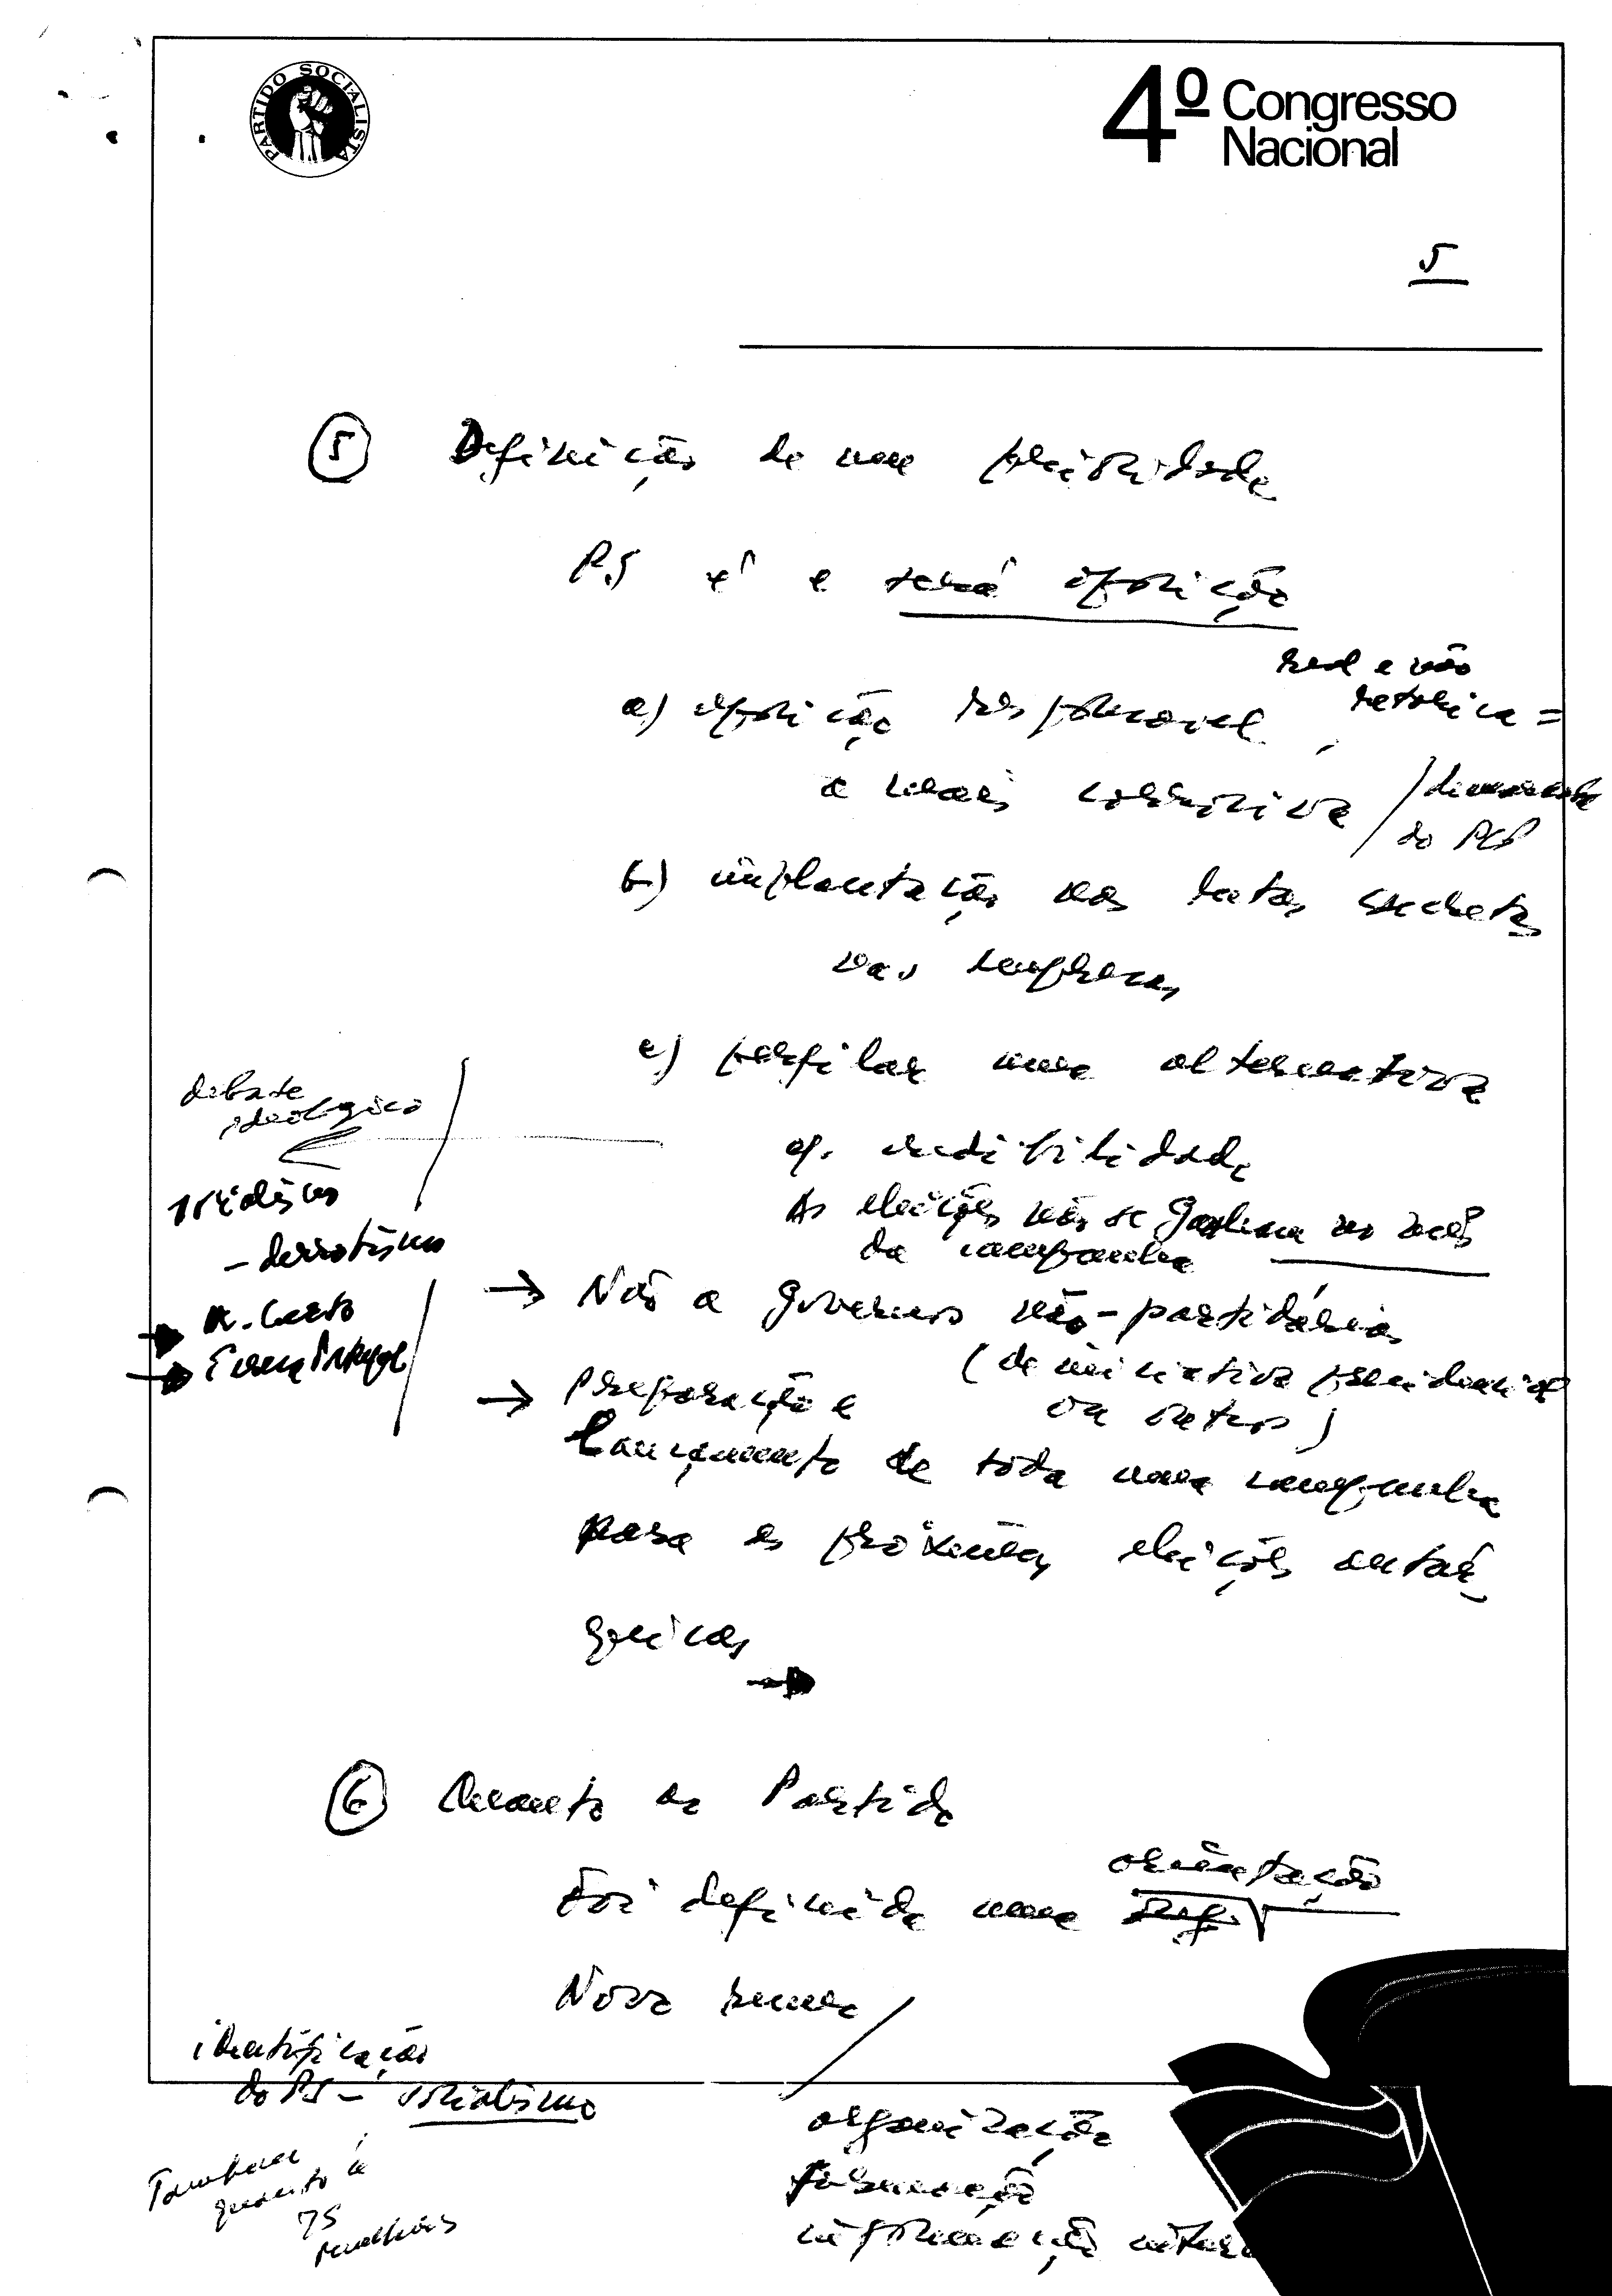 PARTIDO SOCIALISTA
4º Congresso
Nacional
5
5 Definição de uma prioridade
PS é e será oposição
real e não
a) oposição responsável, retórica =
a mais construtiva / demarcada
do PCP
b) implantação nas lutas
nas empresas
c) perfilar uma alternativa
debate
ideológico
credibilidade
As eleições não se ganham no mês
da campanha
- derrotismo
→ Não a governos não-partidários
(de iniciativa presidencial
ou outros)
→ Preparação e
lançamento de toda uma campanha
para as próximas eleições autár-
quicas
6 Quanto ao Partido
orientação
Foi definida uma
Nova
identificação
do PS - socialismo
organização
formação
informação interna
Também
quanto à
JS
mulheres